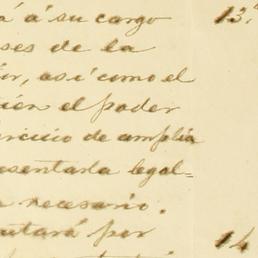 á á su cargo 13.ª
ses de la
así como el
el poder
ercicio de amplia
esentarla legal-
necesario.
utará por 14